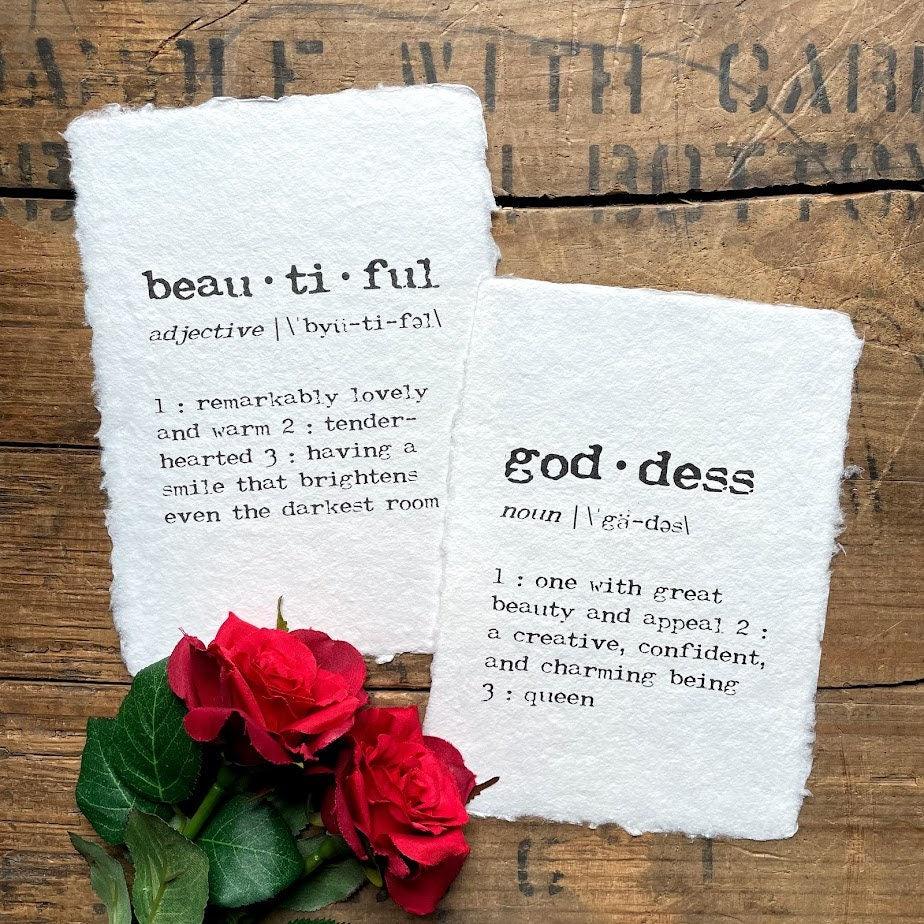 HANDLE WITH CARE
beau·ti·ful
adjective |\ˈbyü-ti-fəl\
1 : remarkably lovely
and warm 2 : tender-
hearted 3 : having a
smile that brightens
even the darkest room
god·dess
noun |\ˈgä-dəs\
1 : one with great
beauty and appeal 2 :
a creative, confident,
and charming being
3 : queen